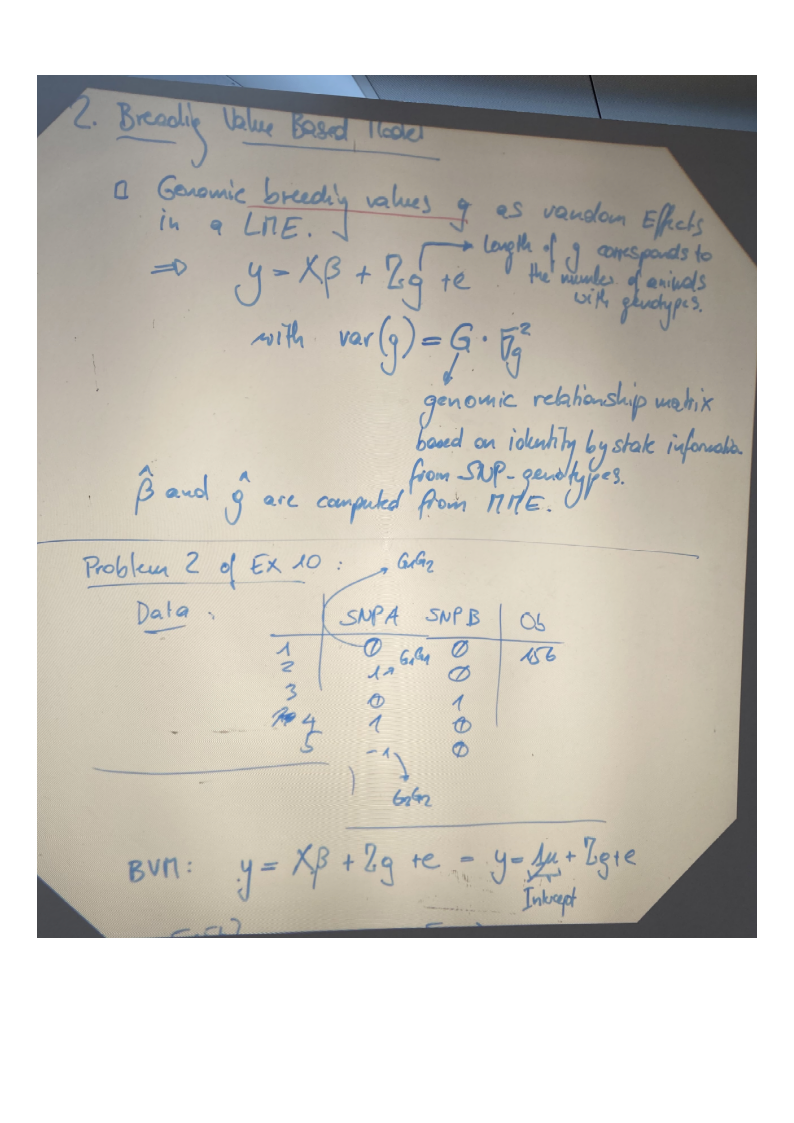 2. Breedig Value Based Model
□ Genomic breedig values g as random Effects
in a LME.
⇒ y = Xβ + Zg + e → Length of g corresponds to
the number of animals
with genotypes.
with var(g) = G · σg²
genomic relationship matrix
based on identity by state informatio
from SNP-genotypes.
β̂ and ĝ are computed from MME.
Problem 2 of Ex 10 :
G1G2
Data :
SNP A SNP B Ob
1 0 0 156
2 1 G1G1 0
3 0 1
4 1 0
5 -1 0
G2G2
BVM: y = Xβ + Zg + e = y = 1μ + Zg + e
Intercept